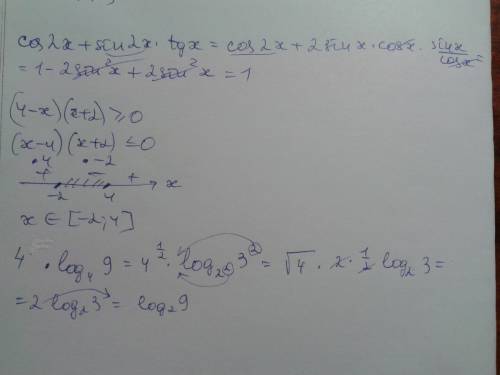 cos2x + sin2x · tgx = cos2x + 2sinx · cosx · sinx/cosx =
= 1 - 2sin²x + 2sin²x = 1
(4-x)(x+2) ≥ 0
(x-4)(x+2) ≤ 0
•4 •-2
+ - + x
-2 4
x ∈ [-2; 4]
4^(1/2) · log₄ 9 = 4^(1/2) · log_(2²) 3² = √4 · 2 · 1/2 log₂ 3 =
= 2 log₂ 3 = log₂ 9